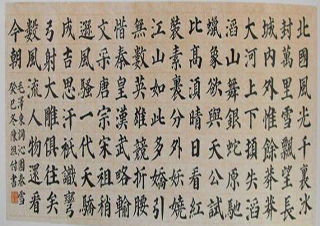 北國風光千裏冰
封萬里雪飄望長
城內外惟餘莽莽
大河上下頓失滔
滔山舞銀蛇原馳
蠟象欲與天公試
比高須晴日看紅
裝素裹分外妖嬈
江山如此多嬌引
無數英雄競折腰
惜秦皇漢武略輸
文采唐宗宋祖稍
遜風騷一代天驕
成吉思汗祇識彎
弓射大雕俱往矣
數風流人物還看
今朝
毛澤東詞沁園春雪
癸巳冬陳祖書